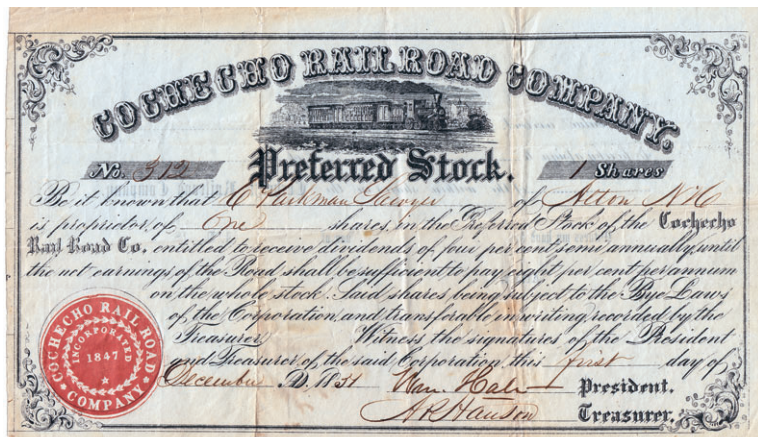 COCHECHO RAIL ROAD COMPANY.
Preferred Stock.
No. 312
1 Shares
Be it known that E Parkman Sawyer of Alton N H
is proprietor of One shares in the Preferred Stock of the Cochecho
Rail Road Co. entitled to receive dividends of four per cent semi annually, until
the net earnings of the Road shall be sufficient to pay eight per cent per annum
on the whole stock. Said shares being subject to the Bye Laws
of the Corporation, and transferable in writing, recorded by the
Treasurer. Witness the signatures of the President
and Treasurer of the said Corporation, this first day of
December A.D. 1851
Wm. Hale President.
A R Hanson Treasurer.
COCHECHO RAIL ROAD COMPANY
INCORPORATED
1847